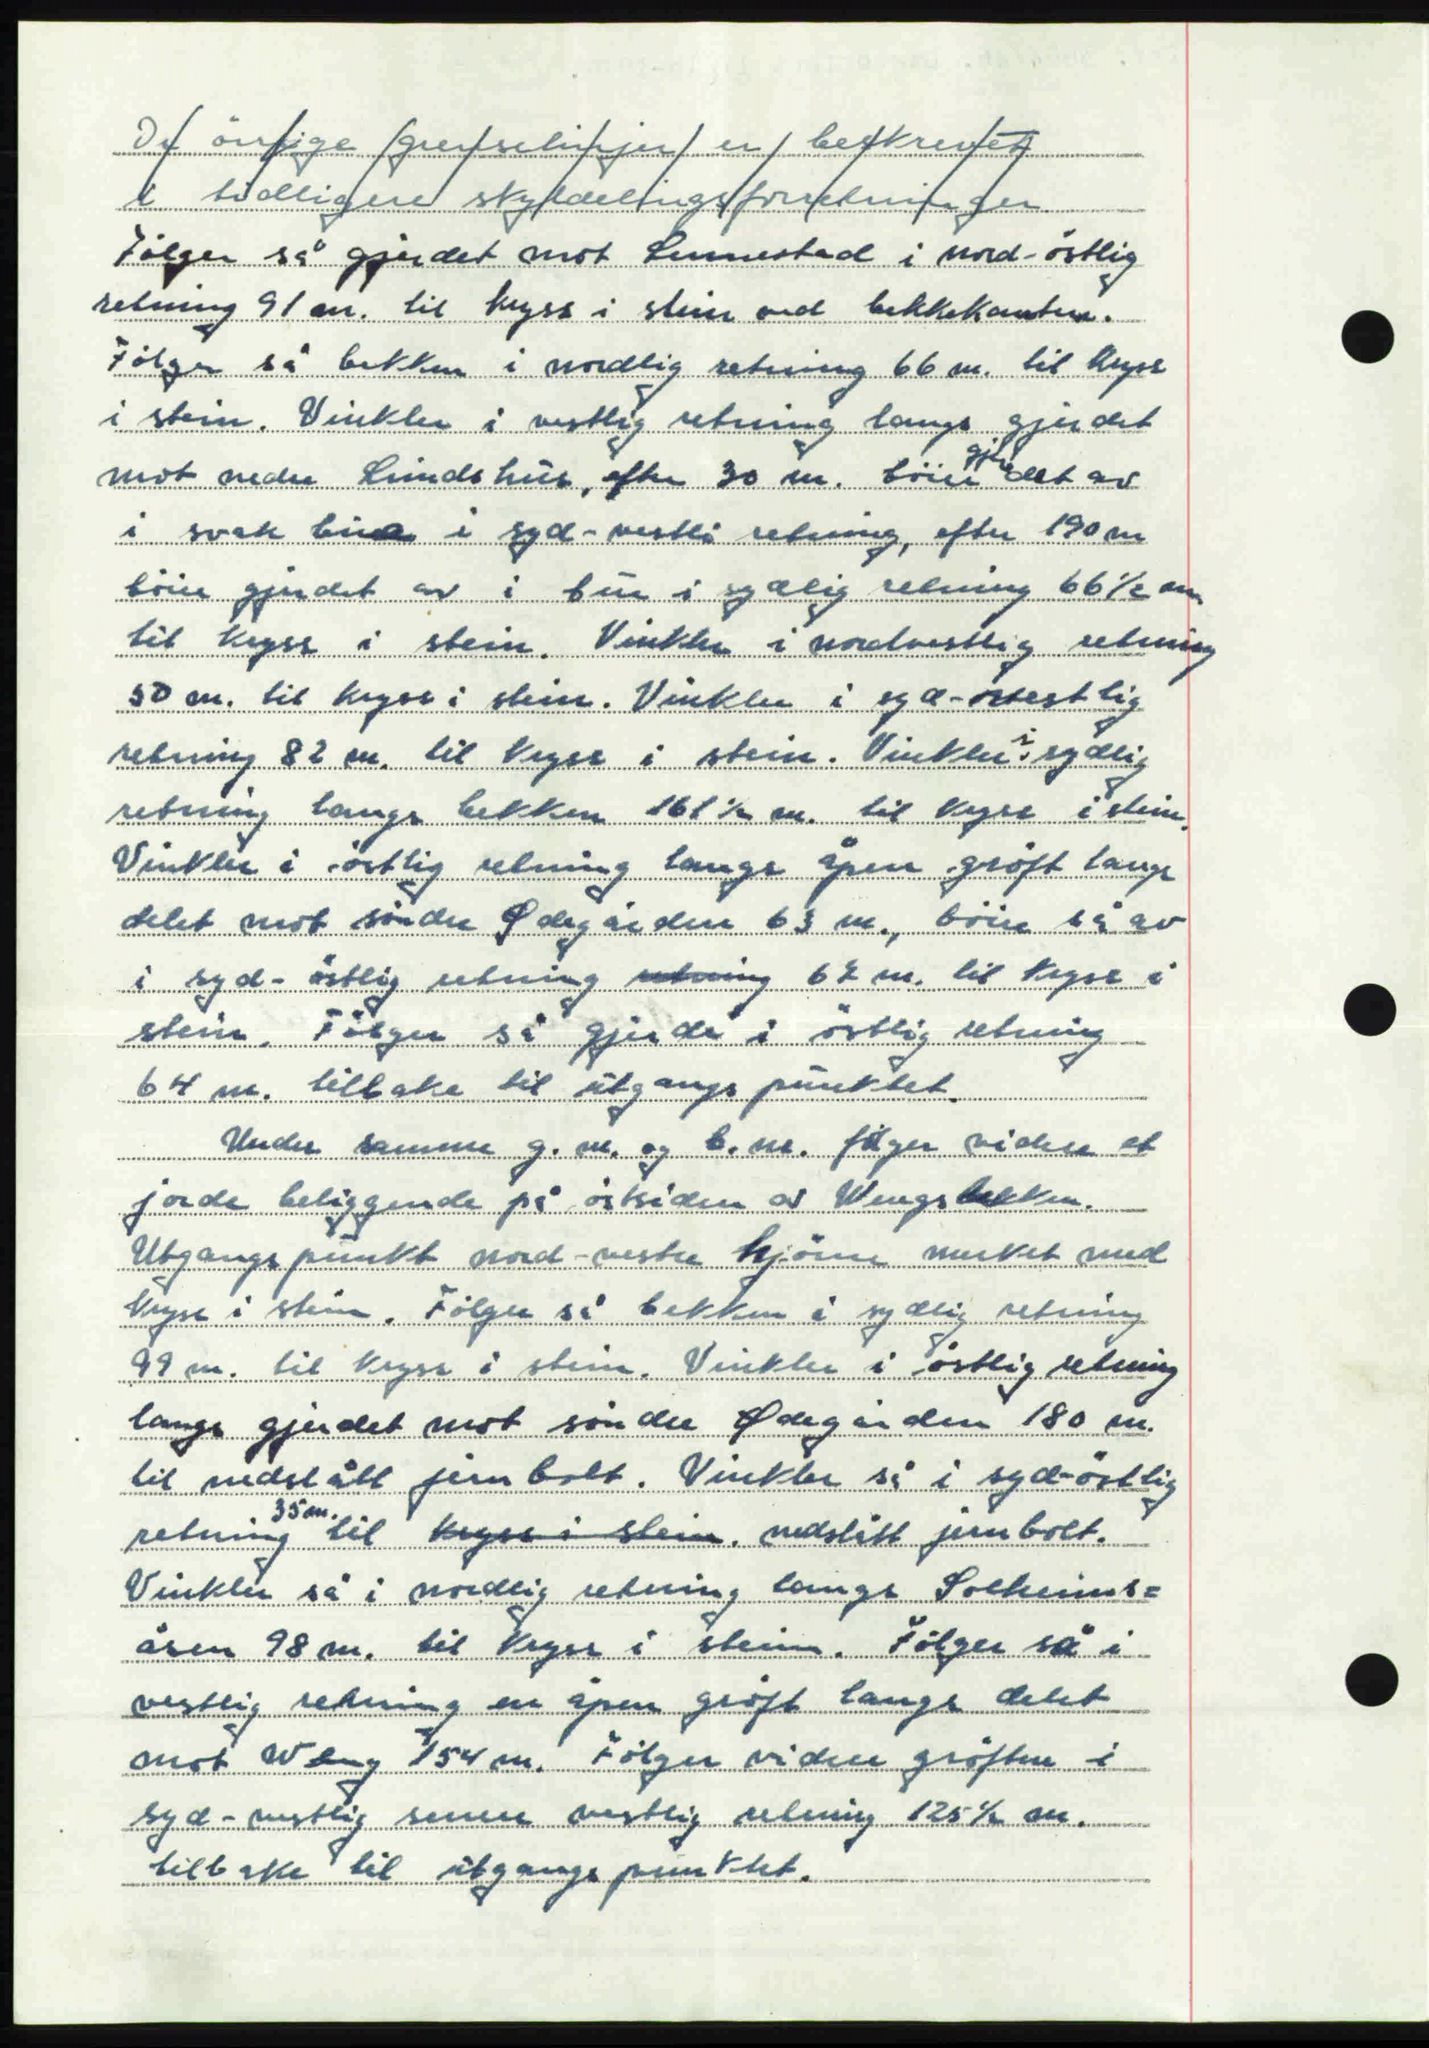 De övrige grenselinjer er beskrevet
i tidligere skyldelingsforretninger
Fölger så gjerdet mot Lennestad i nord-östlig
retning 91 m. til kryss i stein ved bekkekanten.
Fölger så bekken i nordlig retning 66 m. til kryss
i stein. Vinkler i vestlig retning langs gjerdet
mot nedre Lindshus, efter 30 m. böier gjerdet av
i svak bue i syd-vestli retning, efter 190 m
böier gjerdet av i bue i sydlig retning 66 1/2 m
til kryss i stein. Vinkler i nordvestlig retning
50 m. til kryss i stein. Vinkler i syd-vestlig
retning 82 m. til kryss i stein. Vinkler i sydlig
retning langs bekken 161 1/2 m. til kryss i stein.
Vinkler i östlig retning langs åpen gröft langs
delet mot söndre Ødegården 63 m., böier så av
i syd-östlig retning retning 62 m. til kryss i
stein. Fölger så gjerde i östlig retning
64 m. tilbake til utgangspunktet.
Under samme g. nr. og b. nr. fölger videre et
jorde beliggende på östsiden av Wengsbekken.
Utgangspunkt nord-vestre hjörne merket med
kryss i stein. Fölger så bekken i sydlig retning
99 m. til kryss i stein. Vinkler i östlig retning
langs gjerdet mot söndre Ødegården 180 m.
til nedslått jernbolt. Vinkler så i syd-östlig
retning 35 m. til kryss i stein. nedslått jernbolt.
Vinkler så i nordlig retning langs Solheims=
åsen 98 m. til kryss i stein. Fölger så i
vestlig retning en åpen gröft langs delet
mot Weng 154 m. Fölger videre gröften i
syd-vestlig senere vestlig retning 125 1/2 m.
tilbake til utgangspunktet.